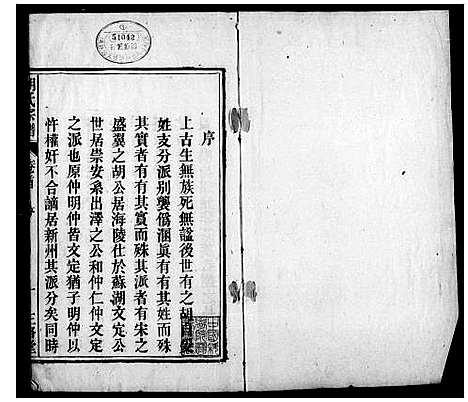 51042
序
上古生無族死無諡後世有之胡
姓支分派别襲僞溷眞有有其姓而殊
其實者有有其實而殊其派者有宋之
盛翼之胡公居海陵仕於蘇湖文定公
世居崇安系出澤之公和仲仁仲文定
之派也原仲明仲皆文定猶子明仲以
忤權奸不合謫居新州其派分矣同時
氏宗譜